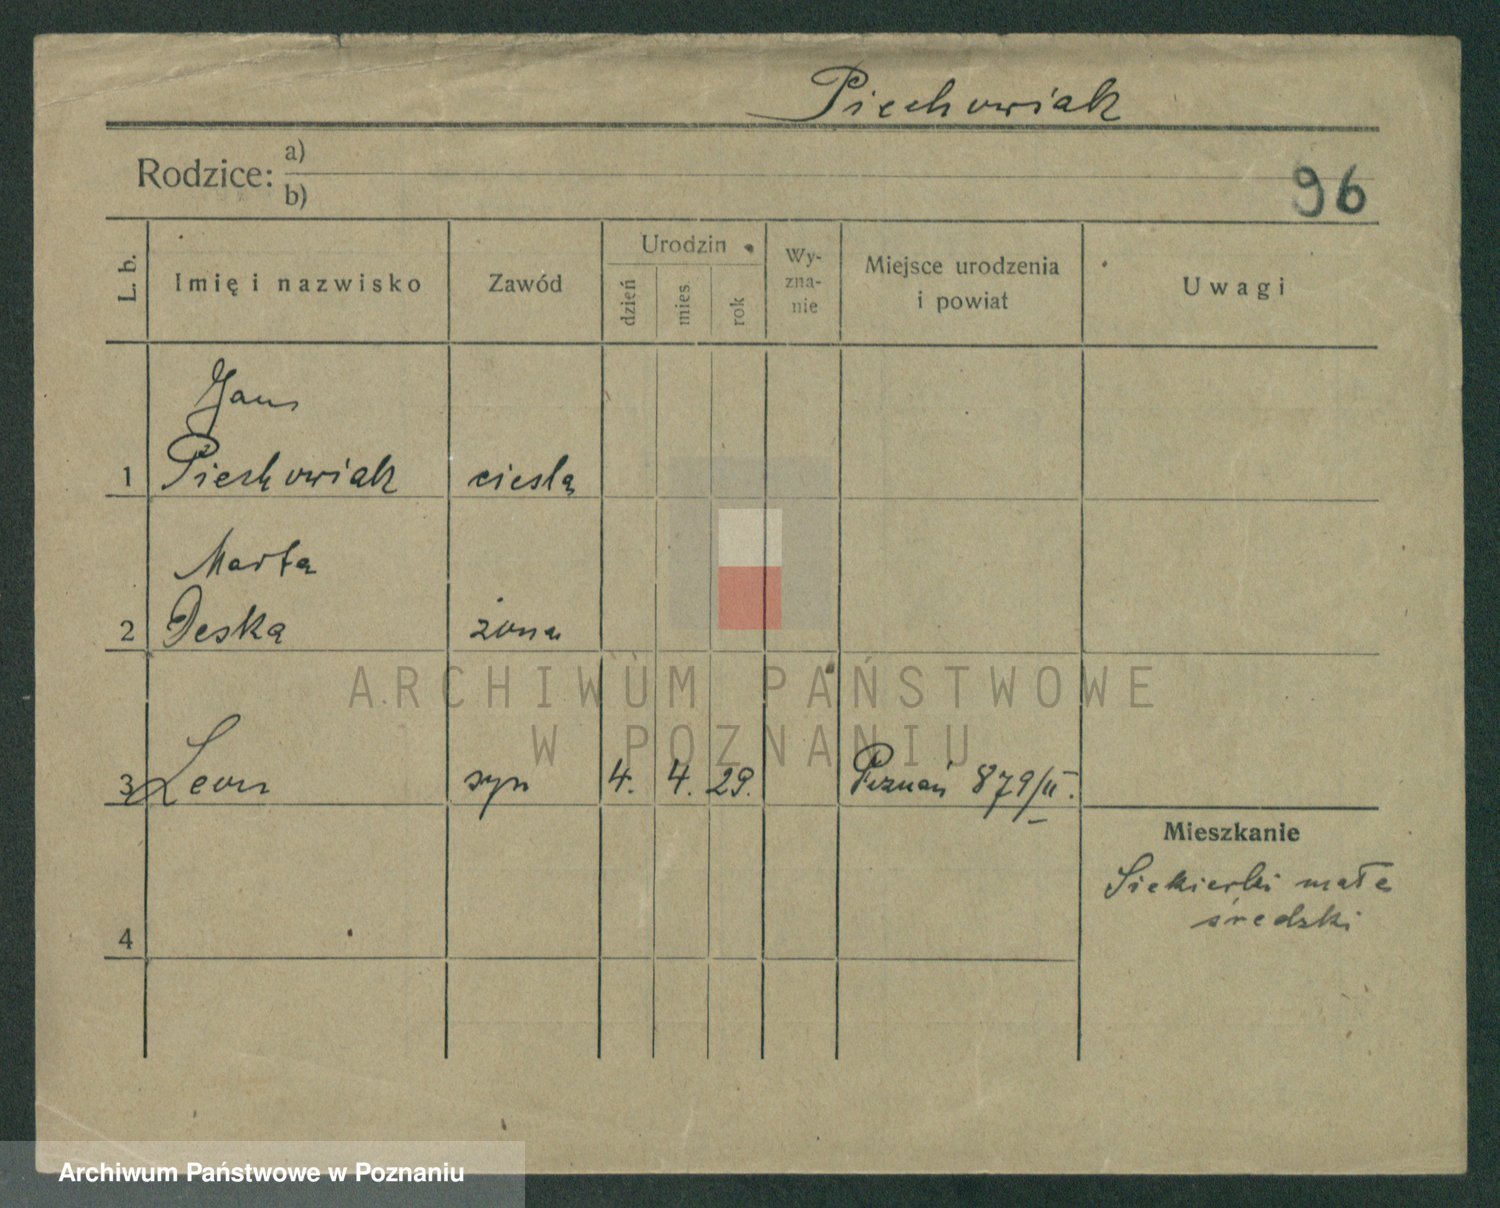 Piechowiak
Rodzice: a)
b)
96
L. b.
Imię i nazwisko
Zawód
Urodzin
dzień
mies.
rok
Wy-
zna-
nie
Miejsce urodzenia
i powiat
Uwagi
Jan
1 Piechowiak cieśla
Marta
2 Deska żona
3 Leon syn 4. 4. 29. Poznań 879/II.
Mieszkanie
Siekierki małe
średzki
4
ARCHIWUM PAŃSTWOWE
W POZNANIU
Archiwum Państwowe w Poznaniu